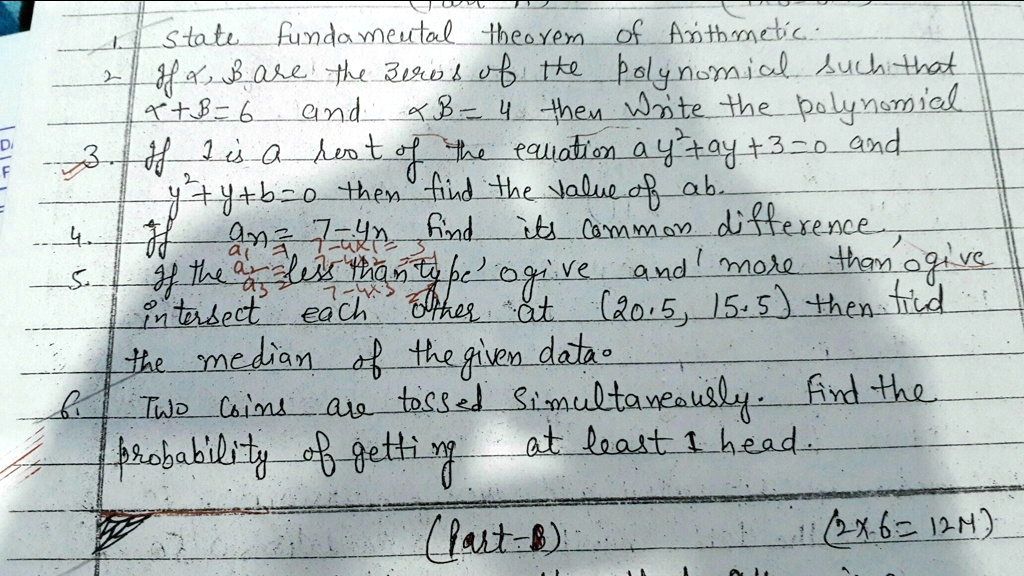 1. State fundamental theorem of Arithmetic.
2 If α, β are the zeros of the polynomial such that
α+β=6 and αβ=4 then write the polynomial
3. If 1 is a root of the equation ay²+ay+3=0 and
y²+y+b=0 then find the value of ab.
4. If an= 7-4n find its common difference,
a1 = 7-4×1= 3
5. If the 'less than type' ogive and 'more than' ogive
a3 = 7-4×3
intersect each other at (20.5, 15.5) then find
the median of the given data.
6. Two Coins are tossed Simultaneously. Find the
probability of getting at least 1 head.
(Part-B) (2×6=12M)